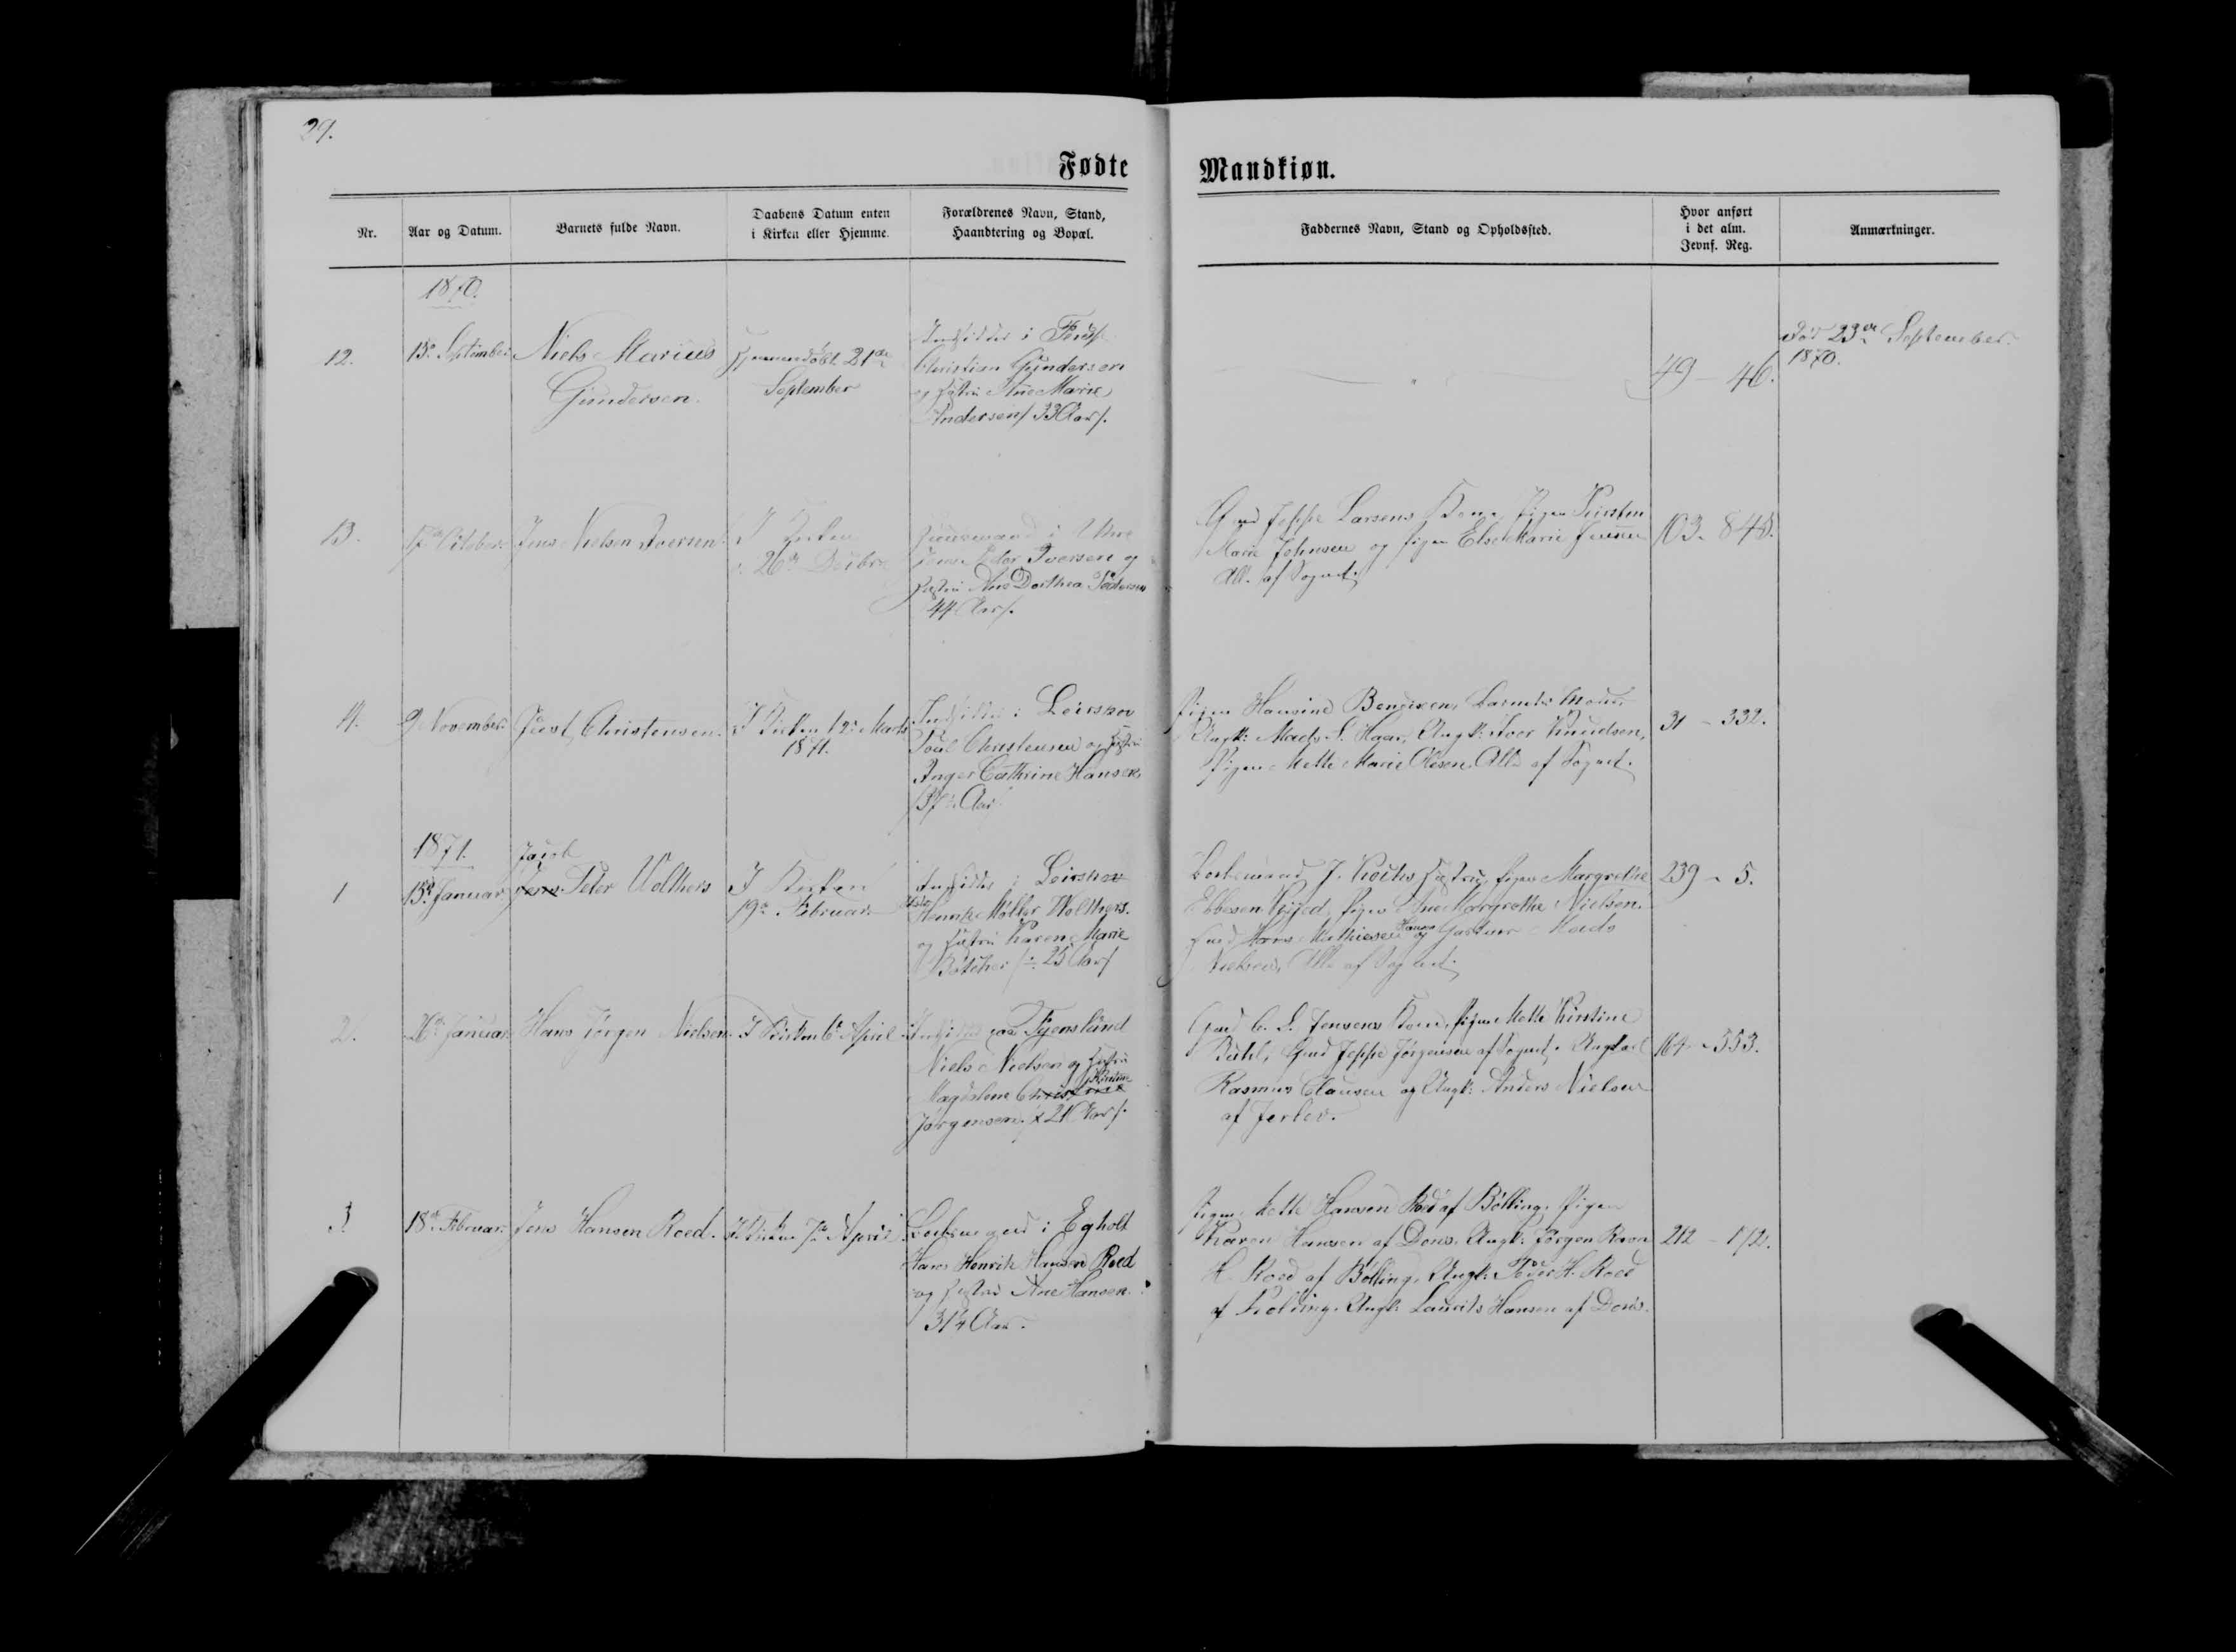 29.
Fødte Mandkiøn.
Nr.
Aar og Datum.
Barnets fulde Navn.
Daabens Datum enten
i Kirken eller Hjemme.
Forældrenes Navn, Stand,
Haandtering og Bopæl.
Faddernes Navn, Stand og Opholdssted.
Hvor anført
i det alm.
Jevnf. Reg.
Anmærkninger.
1870.
12.
15de September
Niels Marius
Gundersen.
Hjemmedøbt 21de
September
Indsidder i
Christian Gundersen
og Hustru Ane Marie
Andersen / 33 Aar /.
49 - 46.
Død 23de September
1870.
13.
17de October.
Jens Nielsen Iversen
I Kirken
26de Decbr.
Huusmand i Uhre
Jens Peder Iversen og
Hustru Ane Dorthea Pedersen
44 Aar /.
Gmd Jeppe Larsens Kone, Pigen Kirsten
Marie Johnsen og Pigen Else Marie
Alle af Sognet.
103. 848.
14.
9 November.
Juul Christensen.
I Kirken 12 Marts
1871.
Indsidder i Leirskov
Poul Christensen og Hustru
Inger Cathrine Hansen
Aar
Pigen Hansine Bendixen, Barnets Moder,
Ungk: Mads S. Haar, Ungk: Iver Knudsen,
Pigen Mette Marie Olesen. Alle af Sognet.
31 - 332.
1871.
1
15de Januar
Jacob
Jens Peter Wolthers
I Kirken
19de Februar.
Indsidder i Leirskov
Henrik Møller Wolthers.
og Hustru Karen Marie
Bøtcher / 25 Aar /
Boelsmand J. Kochs Hustru, Pigen Margrethe
Ebbesen Pigen Ane Margrethe Nielsen.
Gmd Hans Mathiesen Hansen og Gartner Mads
Nielsen, Alle af Sognet.
239 - 5.
2.
26de Januar
Hans Jørgen Nielsen.
I Kirken 6te April
Indsidder paa Fyenslund
Niels Nielsen og Hustru
Kirstine
Magdalene Christine
Jørgensen. / 21 Aar /.
Gmd C. S. Jensens Kone, Pigen Mette Kirstine
Buhl, Gmd Jeppe Jørgensen af Sognet. Ungkarl
Rasmus Clausen og Ungk: Anders Nielsen
af Jerlev.
164 - 553.
3.
18de Februar.
Jens Hansen Roed.
I Kirken 7de April
Boelsmand i Egholt
Hans Henrik Hansen Roed
og Hustru Ane Hansen.
31½ Aar.
Pigen Mette Hansen Roed af Bølling. Pigen
Karen Hansen af Dons. Ungk: Jørgen Ravn
H. Roed af Bølling, Ungk: Peder H. Roed
af Kolding. Ungk: Laurits Hansen af Dons.
212 - 172.